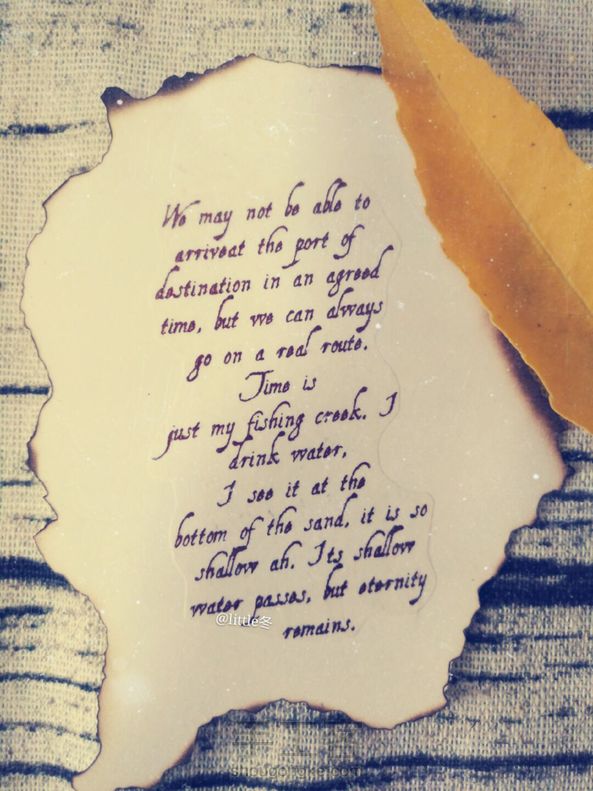 We may not be able to
arriveat the port of
destination in an agreed
time, but we can always
go on a real route.
Time is
just my fishing creek. I
drink water,
I see it at the
bottom of the sand, it is so
shallow ah. Its shallow
water passes, but eternity
remains.
@little冬